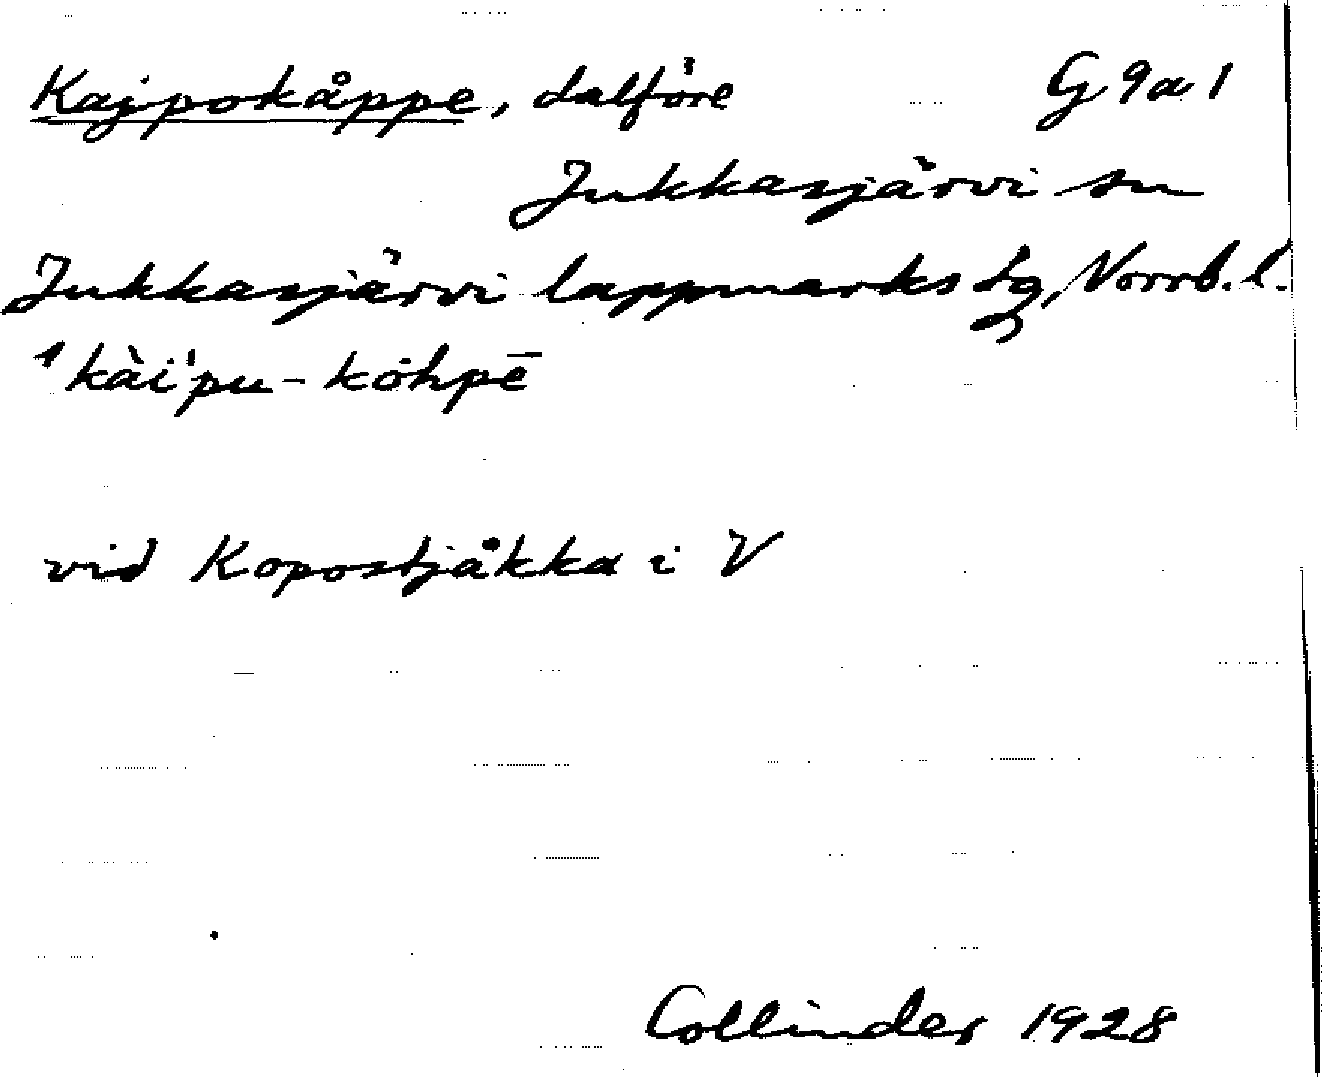 Kajpokåppe, dalföre G 9 a 1
Jukkasjärvi sn
Jukkasjärvi lappmarks tg, Norrb. l.
ˈkài'pu-kòhpē
vid Kopostjåkka i V
Collinder 1928